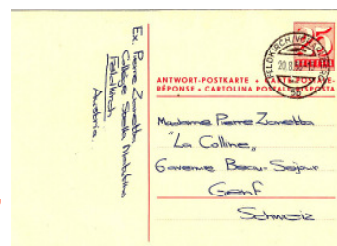 Ex. Pierre Zanetta
Collège Stella Matutina
Feldkirch
Austria.
25
FELDKIRCH
20.8.
ANTWORT-POSTKARTE
RÉPONSE - CARTOLINA POSTALE RISPOSTA
Madame Pierre Zanetta
"La Colline"
6 avenue Beau-Séjour
Genf
Schweiz